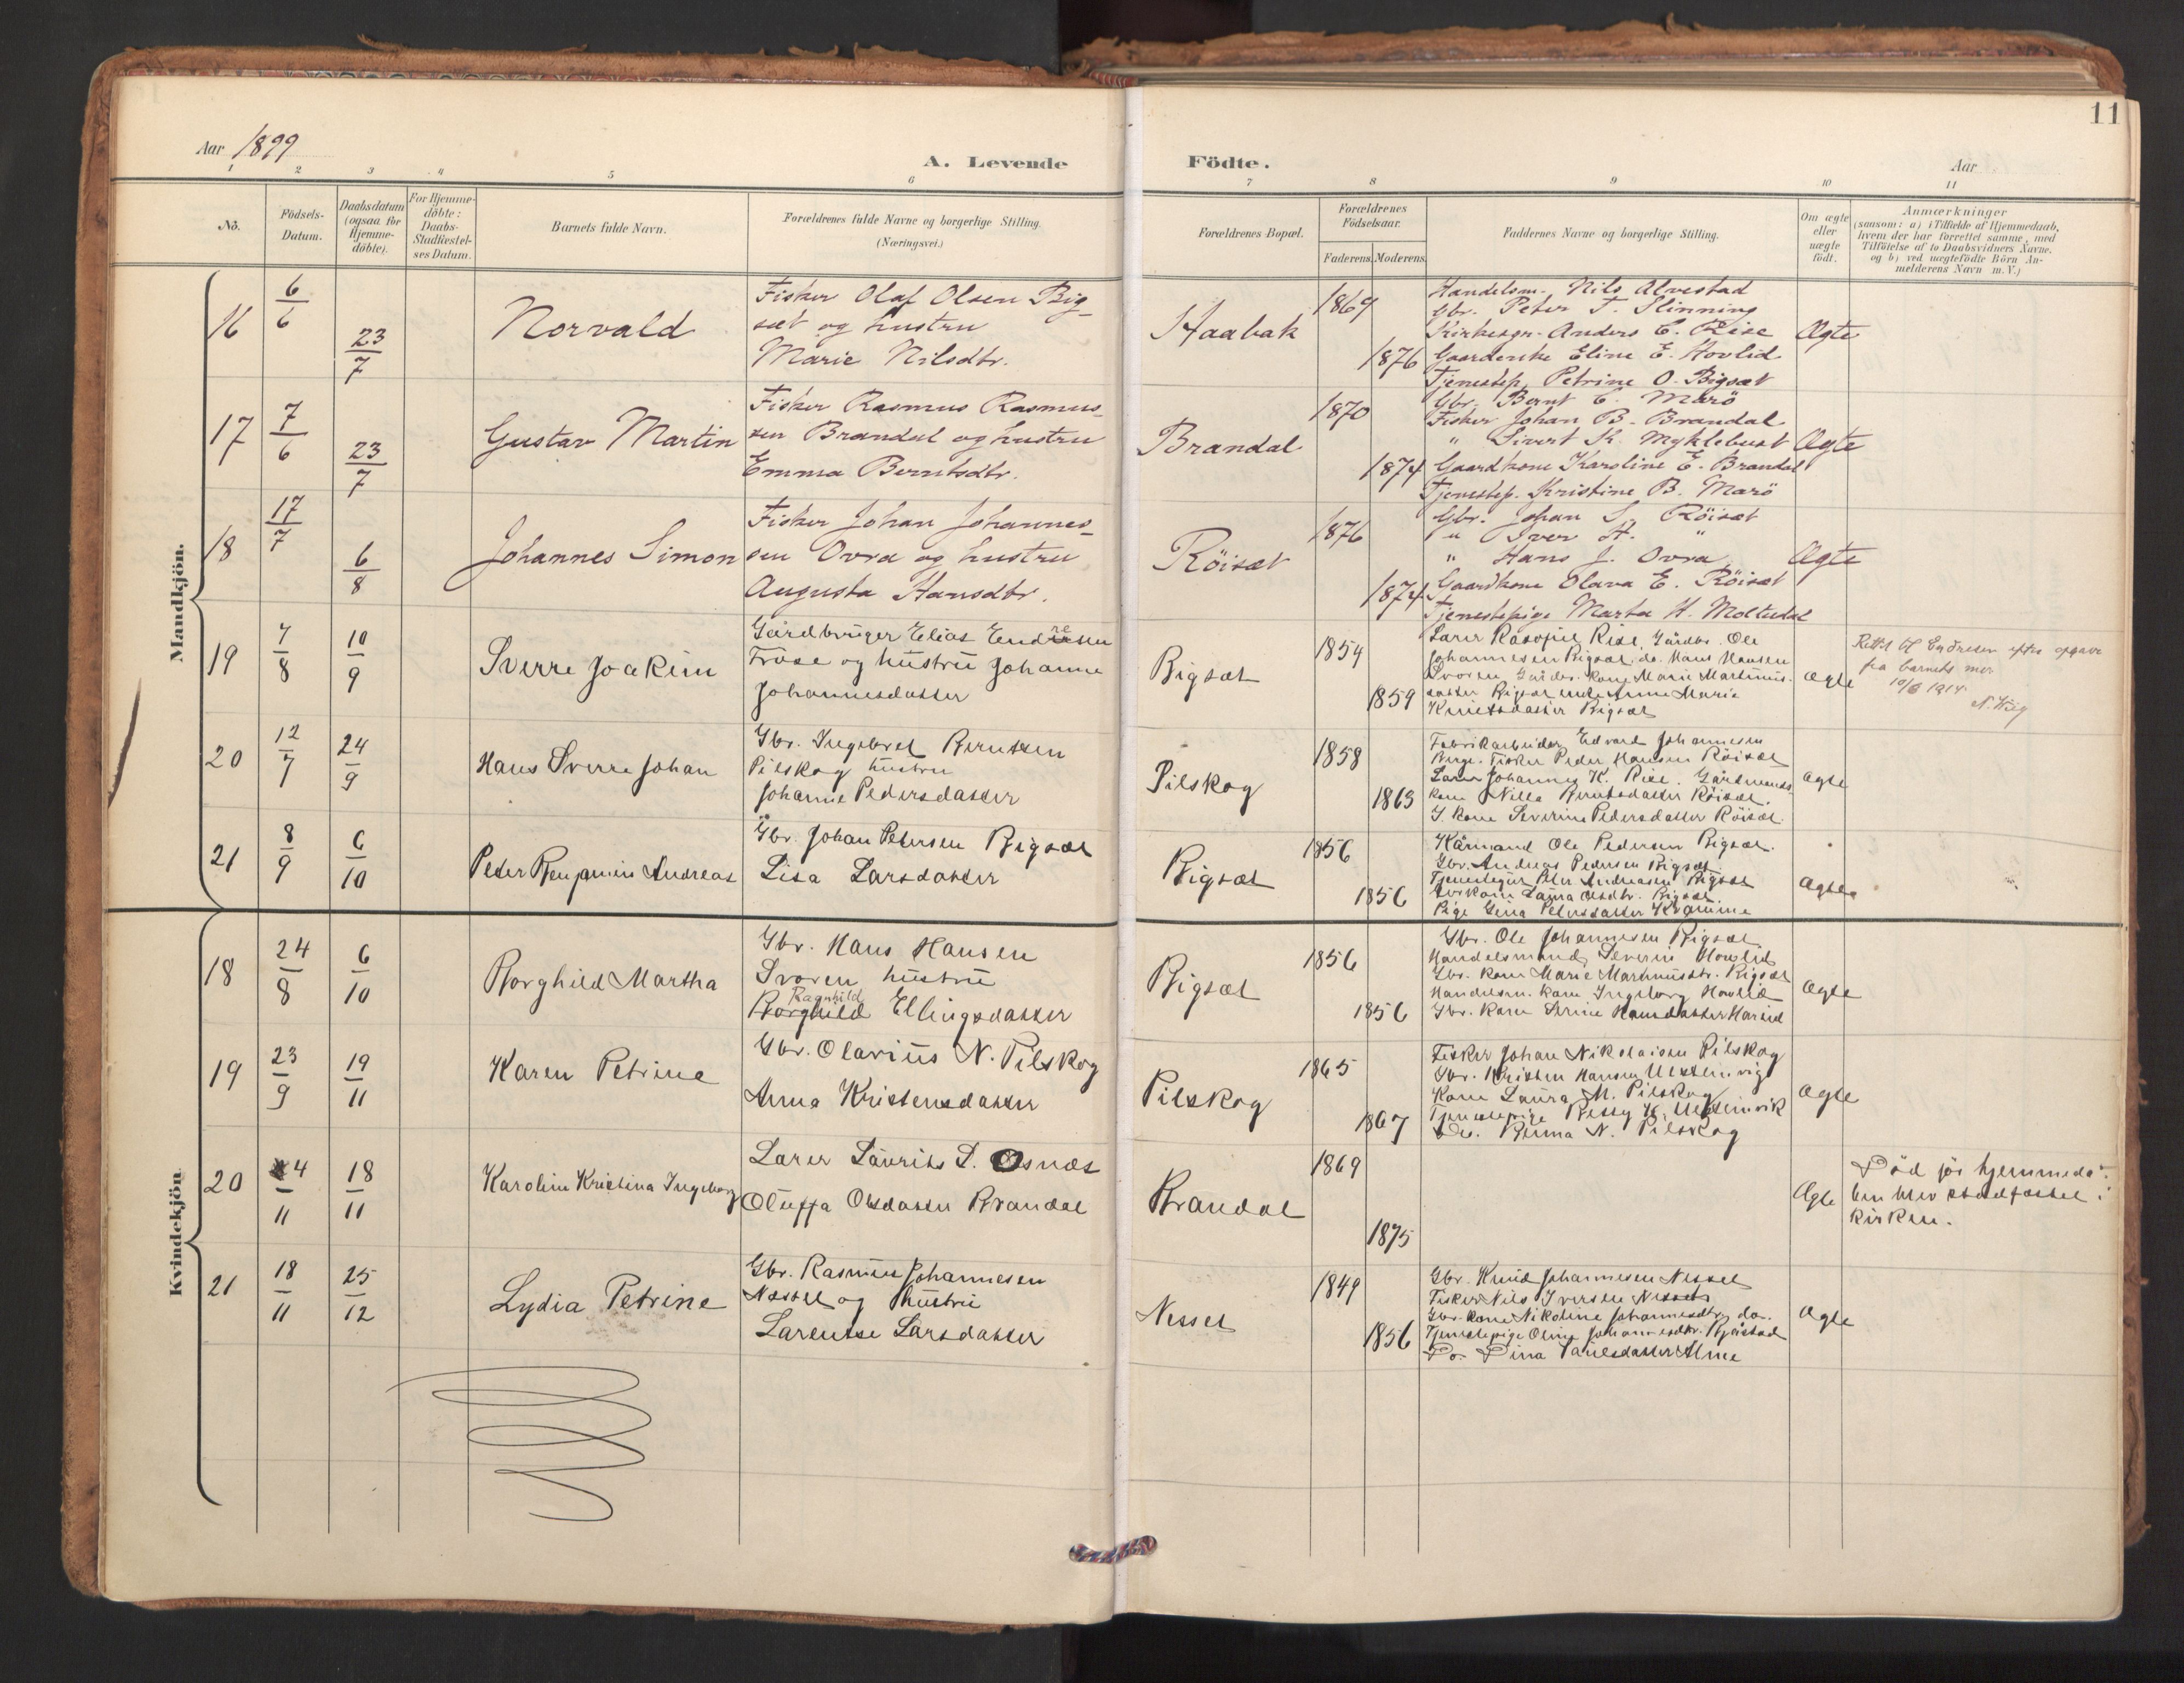 11
Aar 1899
A. Levende Födte.
Aar
1 2 3 4 5 6 7 8 9 10 11
No.
Födsels-
Datum.
Daabsdatum
(ogsaa for
Hjemme-
döbte).
For Hjemme-
döbte:
Daabs-
Stadfæstel-
ses Datum.
Barnets fulde Navn.
Forældrenes fulde Navne og borgerlige Stilling.
(Næringsvei.)
Forældrenes Bopæl.
Forældrenes
Födselsaar.
Faderens. Moderens.
Faddernes Navne og borgerlige Stilling.
Om ægte
eller
uægte
födt.
Anmærkninger
(saasom: a) i Tilfælde af Hjemmedaab,
hvem der har forrettet samme, med
Tilföielse af to Daabsvidners Navne.
og b) ved uægtefödte Börn An-
melderens Navn m. V.)
Mandkjön.
16
6/6
23/7
Norvald
Fisker Olaf Olsen Big-
sæt og hustru
Marie Nilsdtr.
Haabak
1869
1876
Handelsm. Nils Alvestad
Gbr. Peter T. Slinning
Kirkesgn. Anders E. Rise
Gaardenke Eline E. Hovlid
Tjenestep. Petrine O. Bigsæt
Ægte
17
7/6
23/7
Gustav Martin
Fisker Rasmus Rasmus-
sen Brandal og hustru
Emma Berntsdtr.
Brandal
1870
1874
Gbr. Bernt E. Marö
Fisker Johan B. Brandal
" Sivert K. Myklebust
Gaardkone Karoline E. Brandal
Tjenestep. Kristine B. Marö
Ægte
18
17/7
6/8
Johannes Simon
Fisker Johan Johannes-
sen Ovra og hustru
Augusta Hansdtr.
Röisæt
1876
1874
Gbr. Johan S. Röisæt
" Iver H. "
" Hans J. Ovra
Gaardkone Olava E. Röisæt
Tjenestepige Marta H. Moltudal
Ægte
19
7/8
10/9
Sverre Joakim
Gårdbruger Elias Endresen
re
Fröse og hustru Johanne
Johannesdatter
Bigsæt
1854
1859
Lærer Rise, Gårdbr. Ole
Johannesen Bigsæt. do. Hans Hansen
Svoren Gårdbr. kone Marie Martinus-
datter Bigsæt enke Anne Marie
Knutsdatter Bigsæt
Ægte
Rettet til Endresen efter opgave
fra barnets mor
10/6 1914.
20
12/7
24/9
Hans Sverre Johan
Gbr. Ingebret Berntsen
Pilskog hustru
Johanne Pedersdatter
Pilskog
1858
1863
Fabrikarbeider Edvard Johannesen
Berge. Fisker Peder Hansen Röisæt
Lærer Johannes K. Rise. Gårdmands-
kone Nilla Berntsdatter Röisæt.
G. kone Severine Pedersdatter Röisæt.
Ægte
21
8/9
6/10
Peter Benjamin Andreas
Gbr. Johan Petersen Bigsæt
Lisa Larsdatter
Bigsæt
1856
1856
Kårmand Ole Pedersen Bigsæt.
Gbr. Andreas Pedersen Bigsæt
Tjenestegut Peter Andreasen Bigsæt
Gbrkone Laura Olsdtr. Bigsæt
Pige Gina Petersdatter
Ægte
Kvindekjön.
18
24/8
6/10
Borghild Martha
Gbr. Hans Hansen
Svoren hustru
Ragnhild
Borghild Ellingsdatter
Bigsæt
1856
1856
Gbr. Ole Johannesen Bigsæt
Handelsmand Severin Hovlid
Gbr. kone Marie Martinusdtr. Bigsæt
Handelsm. kone Ingeborg Hovlid
Gbr. kone Serine Hansdatter Hareid
Ægte
19
23/9
19/11
Karen Petrine
Gbr. Olarius N. Pilskog
Anna Kristensdatter
Pilskog
1865
1867
Fisker Johan Nikolaisen Pilskog
Gbr. Kristen Hansen Ulsteinvig
Kone Laura M. Pilskog
Tjenestepige Betsy K. Ulsteinvik
Do. Berna N. Pilskog
Ægte
20
4/11
18/11
Karoline Kristina Ingeborg
Lærer Laurits L. Osnæs
Oluffa Olsdatter Brandal
Brandal
1869
1875
Ægte
Död för hjemmedå-
ben blev stadfæstet i
kirken.
21
18/11
25/12
Lydia Petrine
Gbr. Rasmus Johannesen
Næsset og hustru
Larentse Larsdatter
Nesset
1849
1856
Gbr. Knud Johannesen Nesset
Fisker Nils Iversen Nesset
Gbr. kone Nikoline Johannesdtr. do.
Tjenestepige Oline Johannesdtr. Kjeistad
Do. Dina Paulsdatter Alme
Ægte